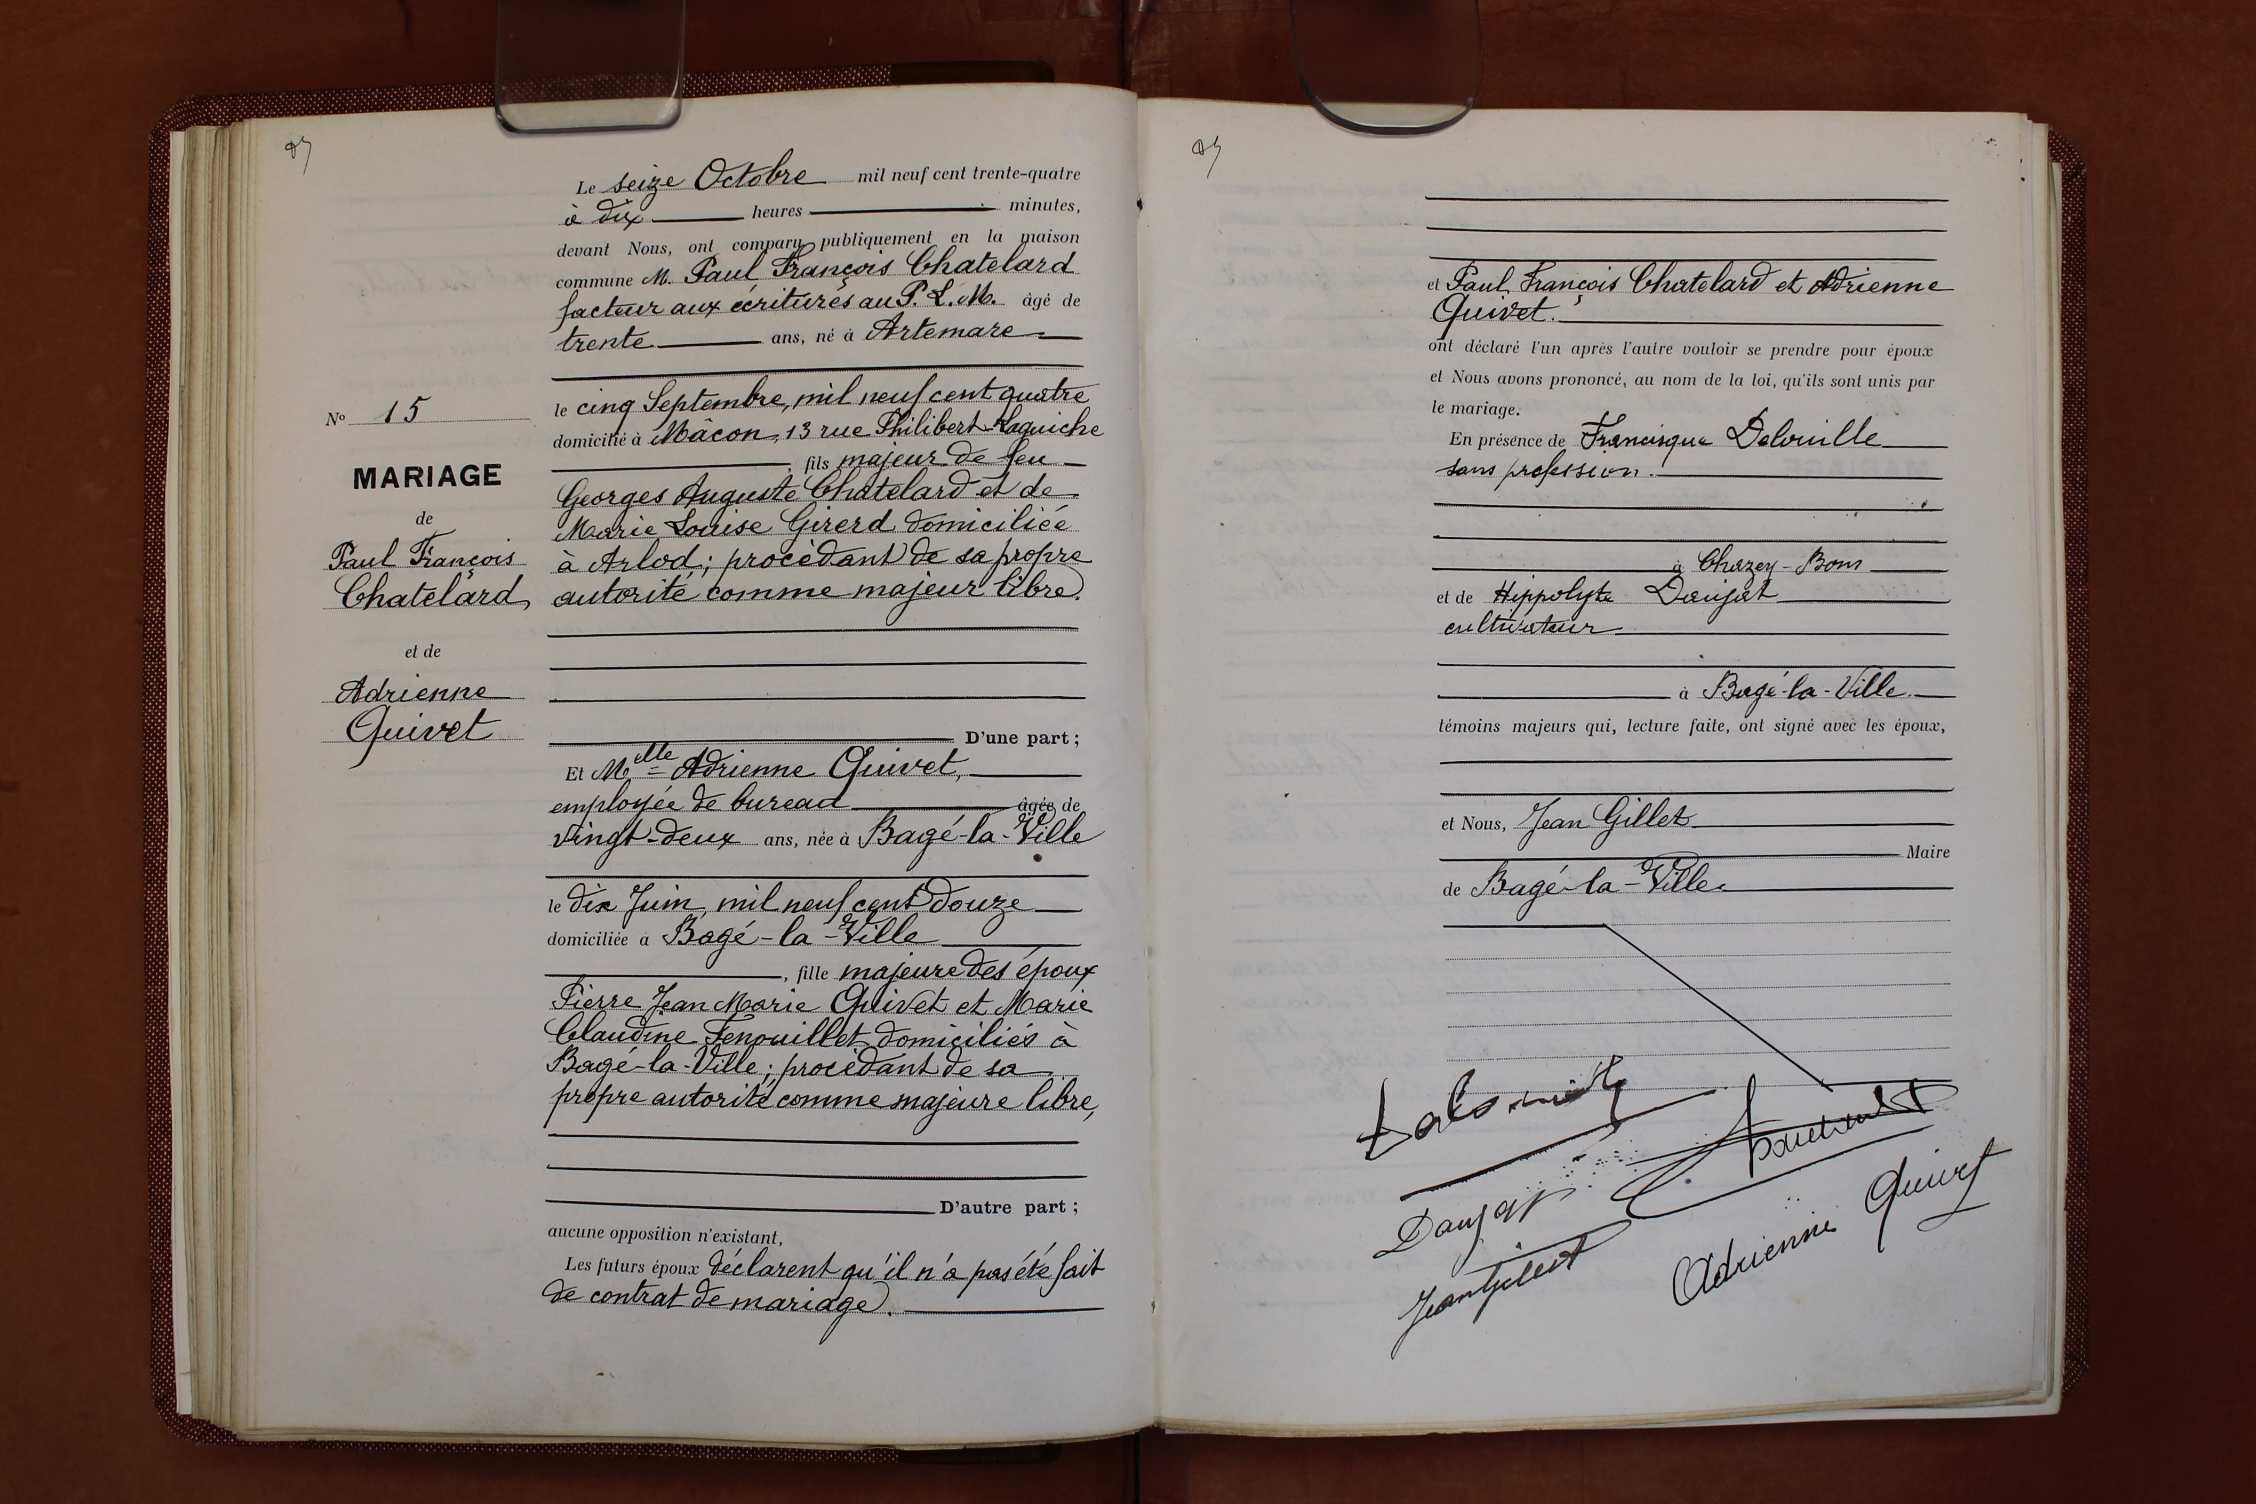 N° 15
MARIAGE
de
Paul François
Chatelard
et de
Adrienne
Quivet
Le seize Octobre mil neuf cent trente-quatre
à dix heures minutes,
devant Nous, ont comparu publiquement en la maison
commune M. Paul François Chatelard
facteur aux écritures au P. L. M. âgé de
trente ans, né à Artemare
le cinq Septembre, mil neuf cent quatre
domicilié à Mâcon, 13 rue Philibert-Laguiche
, fils majeur de feu
Georges Auguste Chatelard et de
Marie Louise Girerd domiciliée
à Arlod; procédant de sa propre
autorité comme majeur libre.
D'une part;
Et Melle Adrienne Quivet,
employée de bureau âgée de
vingt-deux ans, née à Bagé-la-Ville
le dix Juin, mil neuf cent douze
domiciliée à Bagé-la-Ville
, fille majeure des époux
Pierre Jean Marie Quivet et Marie
Claudine Fenouillet domiciliés à
Bagé-la-Ville; procédant de sa
propre autorité comme majeure libre,
D'autre part;
aucune opposition n'existant,
Les futurs époux déclarent qu'il n'a pas été fait
de contrat de mariage.
et Paul François Chatelard et Adrienne
Quivet.
ont déclaré l'un après l'autre vouloir se prendre pour époux
et Nous avons prononcé, au nom de la loi, qu'ils sont unis par
le mariage.
En présence de Francisque Delouille
sans profession.
à Chazey-Bons
et de Hippolyte Daujat
cultivateur
à Bagé-la-Ville.
témoins majeurs qui, lecture faite, ont signé avec les époux,
et Nous, Jean Gillet
Maire
de Bagé-la-Ville.
Daujat
Jean Gillet
Adrienne Quivet